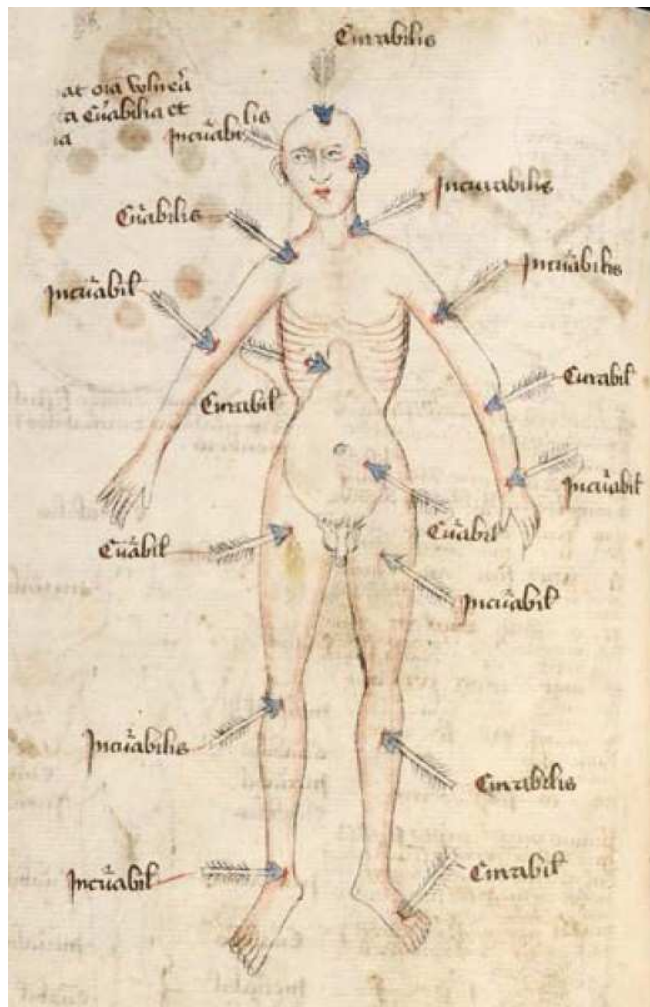 Curabilis
at oīa volnēa
a Cūabilia et
ia
Incūabilis
Incurabilis
Cūabilis
Incūabilis
Incūabil
Curabil
Curabil
Incūabil
Cūabil
Cūabil
Incūabil
Incūabilis
Curabilis
Incūabil
Curabil